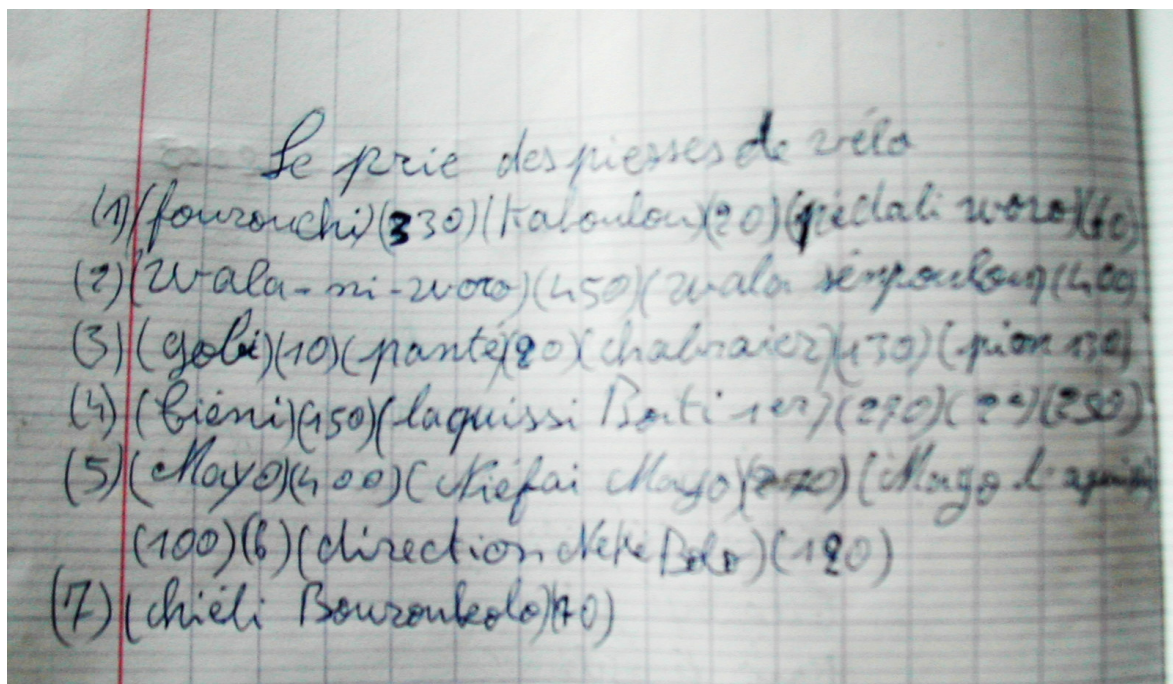 Le prie des piesses de vélo
(1) (fourouchi) (330) (Kaboulou) (20) (pédali woro) (60)
(2) (Wala-ni-woro) (450) (wala sémpoulou) (400)
(3) (gobi) (10) (panté) (20) (chabraier) (130) (pion 130)
(4) (biéni) (150) (laquissi Boiti 1er) (270) (2e) (250)
(5) (Mayo) (400) (Niéfai Mayo) (270) (Mayo
(100) (6) (direction Neke Bolo) (120)
(7) (chiéli Bouroukolo) (70)